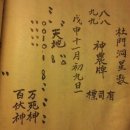 杜門洞星數
八八
九九
神農牌
有司標
戊申十一月初九旦
天地
万死神
百伏神